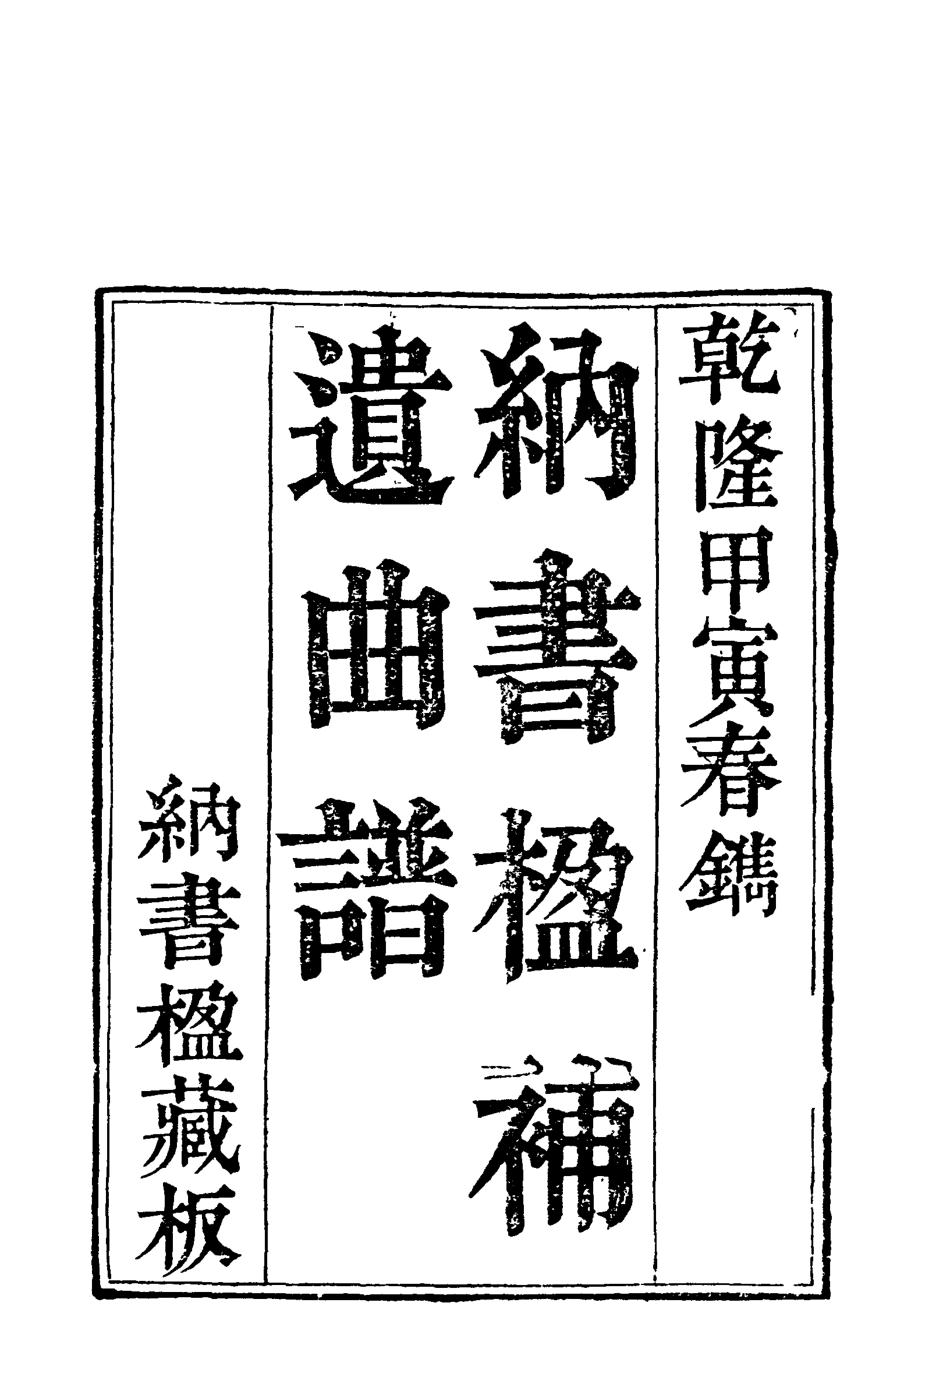 乾隆甲寅春鐫
納書楹補
遺曲譜
納書楹藏板